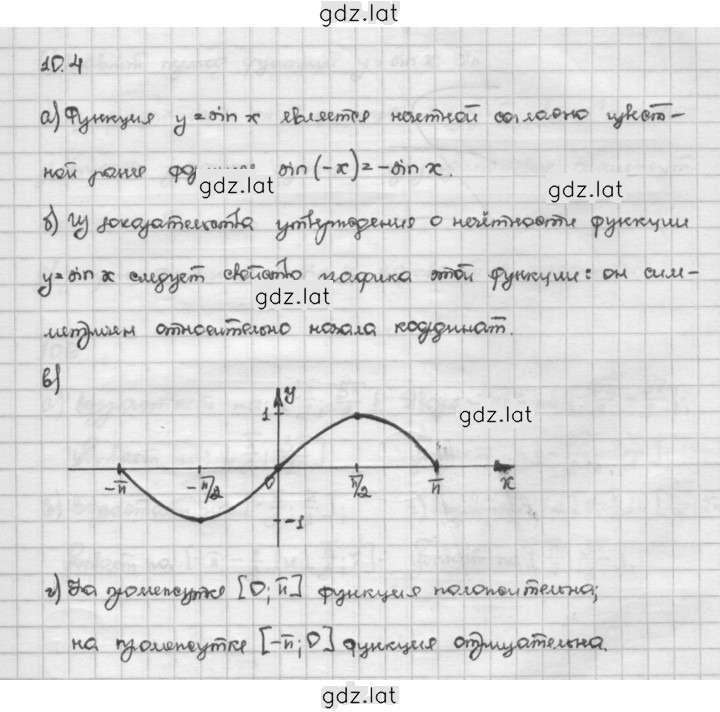 gdz.lat
10.4
а) Функция y = sin x является нечетной согласно извест-
ной ранее sin(-x) = -sin x.
gdz.lat
gdz.lat
б) Из доказательства утверждения о нечётности функции
y = sin x следует свойство графика этой функции: он сим-
gdz.lat
метричен относительно начала координат.
в)
y
1
gdz.lat
-π -π/2 0 π/2 π x
-1
г) На промежутке [0; π] функция положительна;
на промежутке [-π; 0] функция отрицательна.
gdz.lat